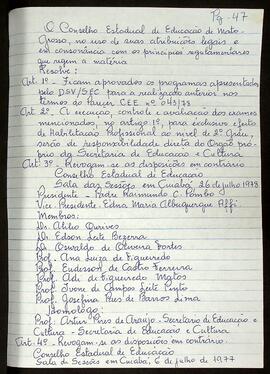 Pg-47
O Conselho Estadual de Educação de Mato-
Grosso, no uso de suas atribuições legais e
em consonância com os princípios regulamentares
que regem a matéria
Resolve:
Art. 1º - Ficam aprovados os programas apresentados
pelo DSV/SEC para a realização anterior nos
termos do parecer CEE nº 043/78
Art. 2º - O execução, controle e avaliação dos exames
mencionados, no artigo 1º, para exclusivo efeito
de Habilitação Profissional ao nível de 2º Grau,
serão de responsabilidade direta do Órgão próprio
da Secretaria de Educação e Cultura
Art. 3º - Revogam-se as disposições em contrário
Conselho Estadual de Educação
Sala das Sessões em Cuiabá, 26 de julho 1978
Presidente - Padre Raimundo C. Pombo
Vice Presidente - Edna Maria Albuquerque Affi
Membros:
Dr. Atílio Ourives
Dr. Edson Leite Bezerra
Dr. Oswaldo de Oliveira Fortes
Prof. Ana Luiza de Figueiredo
Prof. de Castro Ferreira
Prof. de Figueiredo Mattos
Prof. Ivone de Campos Leite Pinto
Prof. Josefina Pires de Barros Lima
Homologo:
Prof. Artur Pires de Araujo - Secretario de Educação e
Cultura - Secretaria de Educação e Cultura
Art. 4º - Revogam-se as disposições em contrário.
Conselho Estadual de Educação
Sala de Sessões em Cuiabá, 6 de julho de 1977